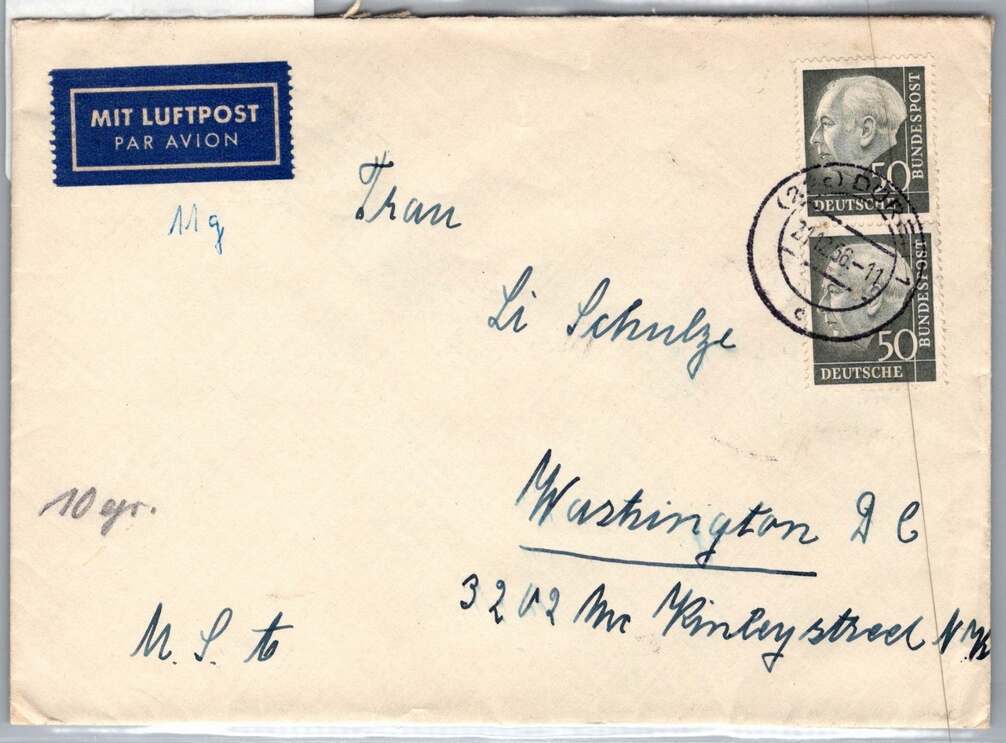 MIT LUFTPOST
PAR AVION
50
BUNDESPOST
DEUTSCHE
50
BUNDESPOST
DEUTSCHE
11 g
Frau
Li Schulze
10 gr.
Washington D C
3202 Mc Kinleystreet N W
U. S. A